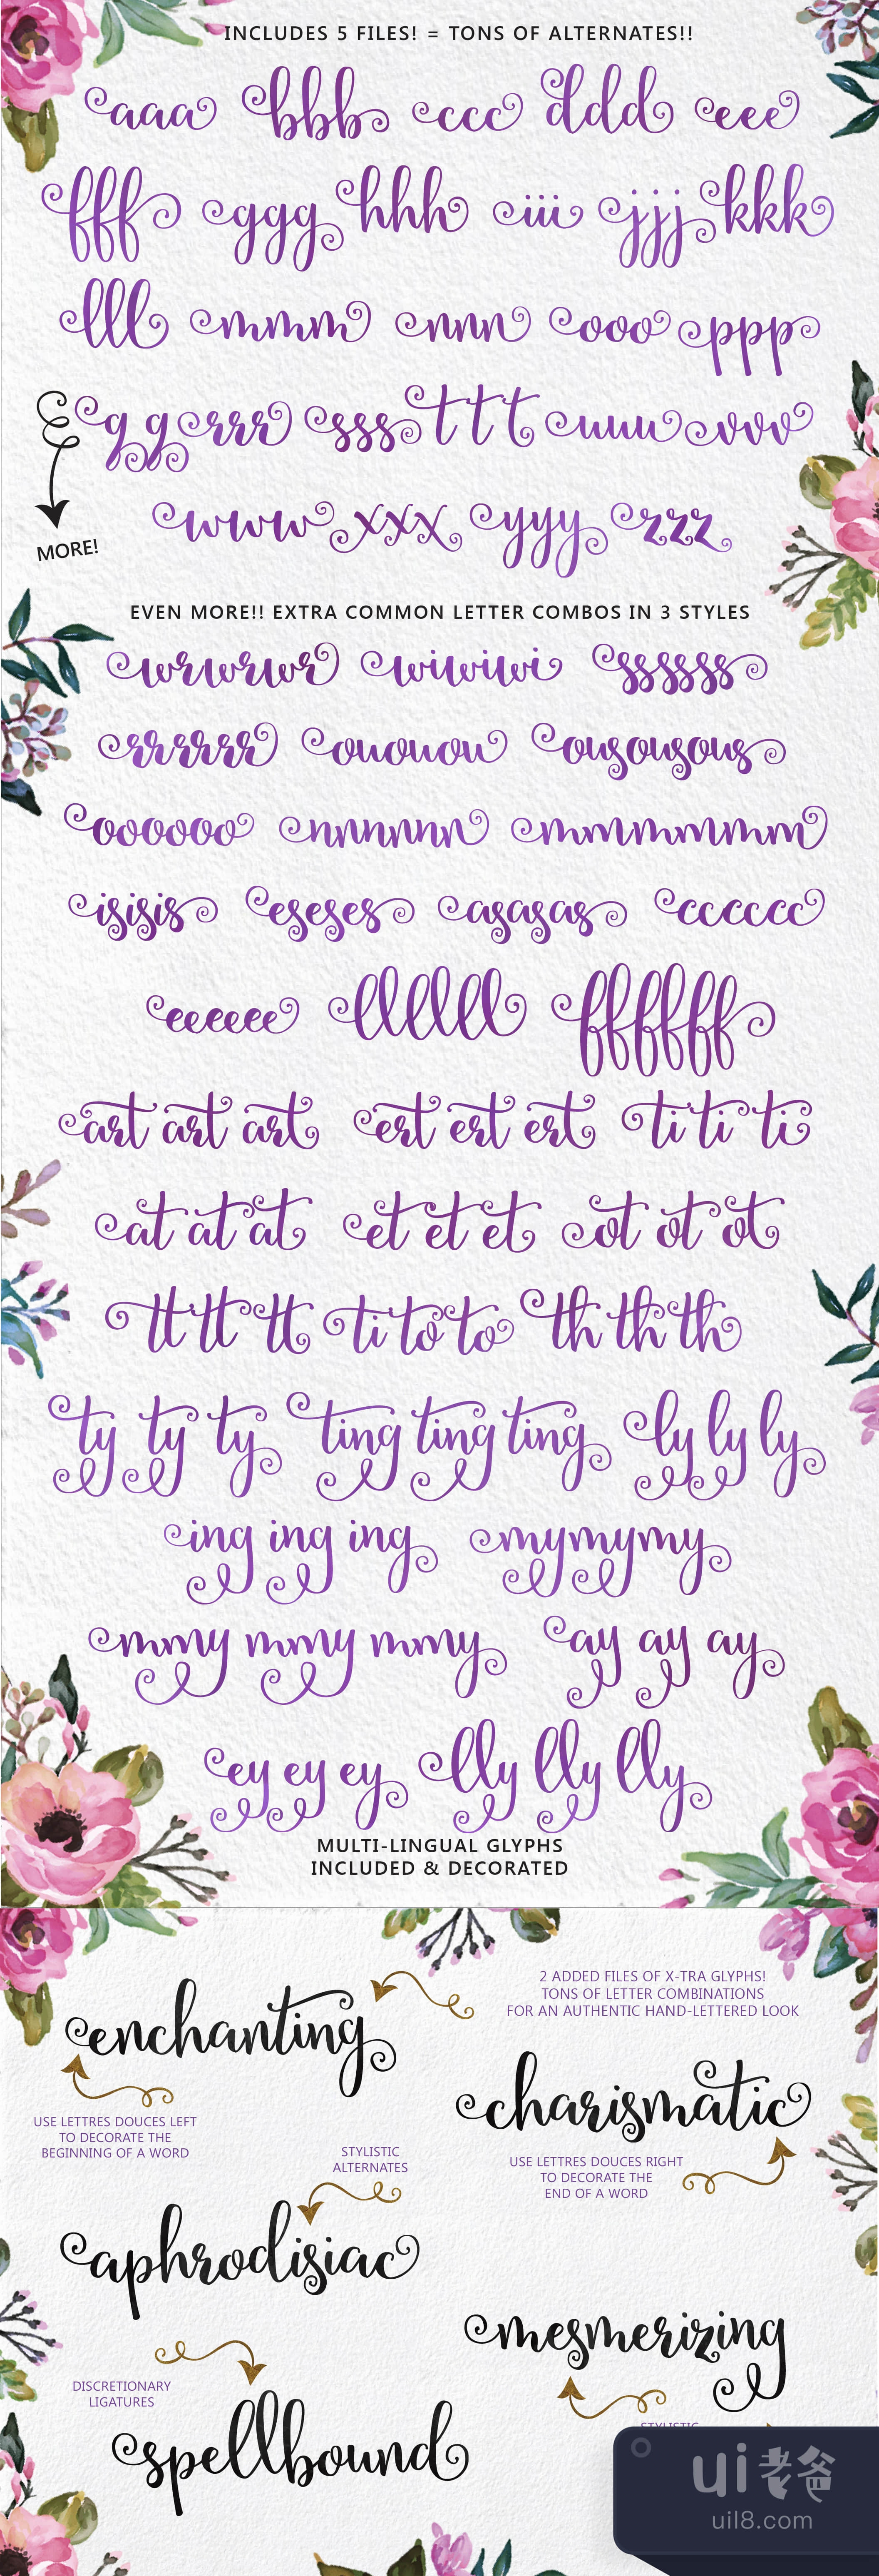 INCLUDES 5 FILES! = TONS OF ALTERNATES!!
aaa bbb ccc ddd eee
fff ggg hhh iii jjj kkk
lll mmm nnn ooo ppp
g g rrr sss t t t uuu vvv
MORE!
www xxx yyy zzz
EVEN MORE!! EXTRA COMMON LETTER COMBOS IN 3 STYLES
wrwrwr wiwiwi ssssss
rrrrrr ououou ousousous
oooooo nnnnnn mmmmmm
isisis eseses asasas cccccc
eeeeee llllll ffffff
art art art ert ert ert ti ti ti
at at at et et et ot ot ot
tt tt tt ti to to th th th
ty ty ty ting ting ting ly ly ly
ing ing ing mymymy
mmy mmy mmy ay ay ay
ey ey ey lly lly lly
MULTI-LINGUAL GLYPHS
INCLUDED & DECORATED
2 ADDED FILES OF X-TRA GLYPHS!
TONS OF LETTER COMBINATIONS
FOR AN AUTHENTIC HAND-LETTERED LOOK
enchanting
charismatic
USE LETTRES DOUCES LEFT
TO DECORATE THE
BEGINNING OF A WORD
STYLISTIC
ALTERNATES
USE LETTRES DOUCES RIGHT
TO DECORATE THE
END OF A WORD
aphrodisiac
mesmerizing
DISCRETIONARY
LIGATURES
STYLISTIC
spellbound
ui老爸
uil8.com